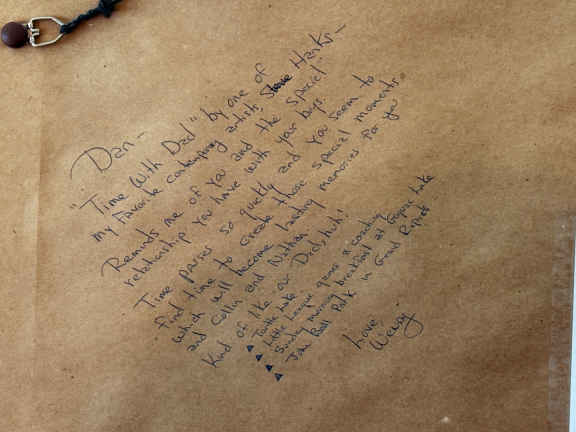 Dan -
"Time With Dad" by one of
my favorite contemporary artists, Steve Hanks -
Reminds me of you and the special
relationship you have with your boys.
Time passes so quickly and you seem to
find time to create those special moments
which will become lasting memories for you
and Collin and Nathan.
Kind of like our Dad, huh!
Turtle Lake
Little League games & coaching
Sunday morning breakfast at Lake
John Ball Park in Grand Rapids
Love
Wendy